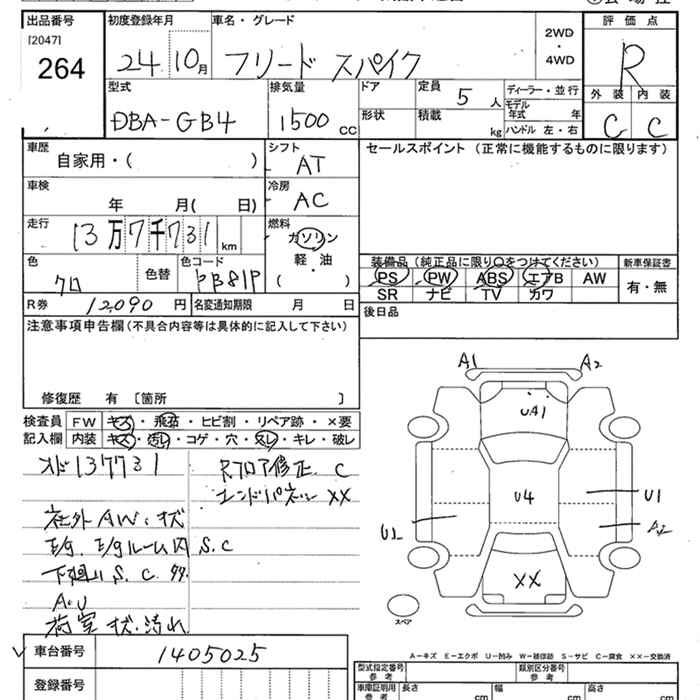 出品番号 初度登録年月 車名・グレード 評価点
[2047]
264 24 10月 フリード スパイク 2WD・4WD R
外装 内装
型式 排気量 ドア 定員 5人 ディーラー・並行
DBA-GB4 1500cc 形状 積載 kg モデル年式 年
ハンドル 左・右 C C
車歴 シフト セールスポイント(正常に機能するものに限ります)
自家用・( ) AT
車検 年 月( 日) 冷房 AC
走行 13万7千731km 燃料 ガソリン
軽・油
( )
色 クロ 色替 色コード 装備品(純正品に限り○をつけてください) 新車保証書
PS PW ABS エアB AW 有・無
SR ナビ TV カワ
R券 12,090円 名変通知期限 月 日 後日品
注意事項申告欄(不具合内容等は具体的に記入して下さい)
修復歴 有〔箇所 〕
検査員 FW キズ・飛石・ヒビ割・リペア跡・×要
記入欄 内装 キズ・汚レ・コゲ・穴・スレ・キレ・破レ
137731 Rフロア修正 C
エンドパネル XX
社外AW、キズ
E/g、E/gルーム内 S.C
下廻り S.C
A.U
荷室 キズ・汚れ
A1 A2
UA1
U4
U1
XX
スペア
A-キズ E-エクボ U-凹み W-補修跡 S-サビ C-腐食 XX-交換済
車台番号 1405025
登録番号
型式指定番号 参考 類別区分番号 参考
車庫証明用 参考 長さ cm 幅 cm 高さ cm